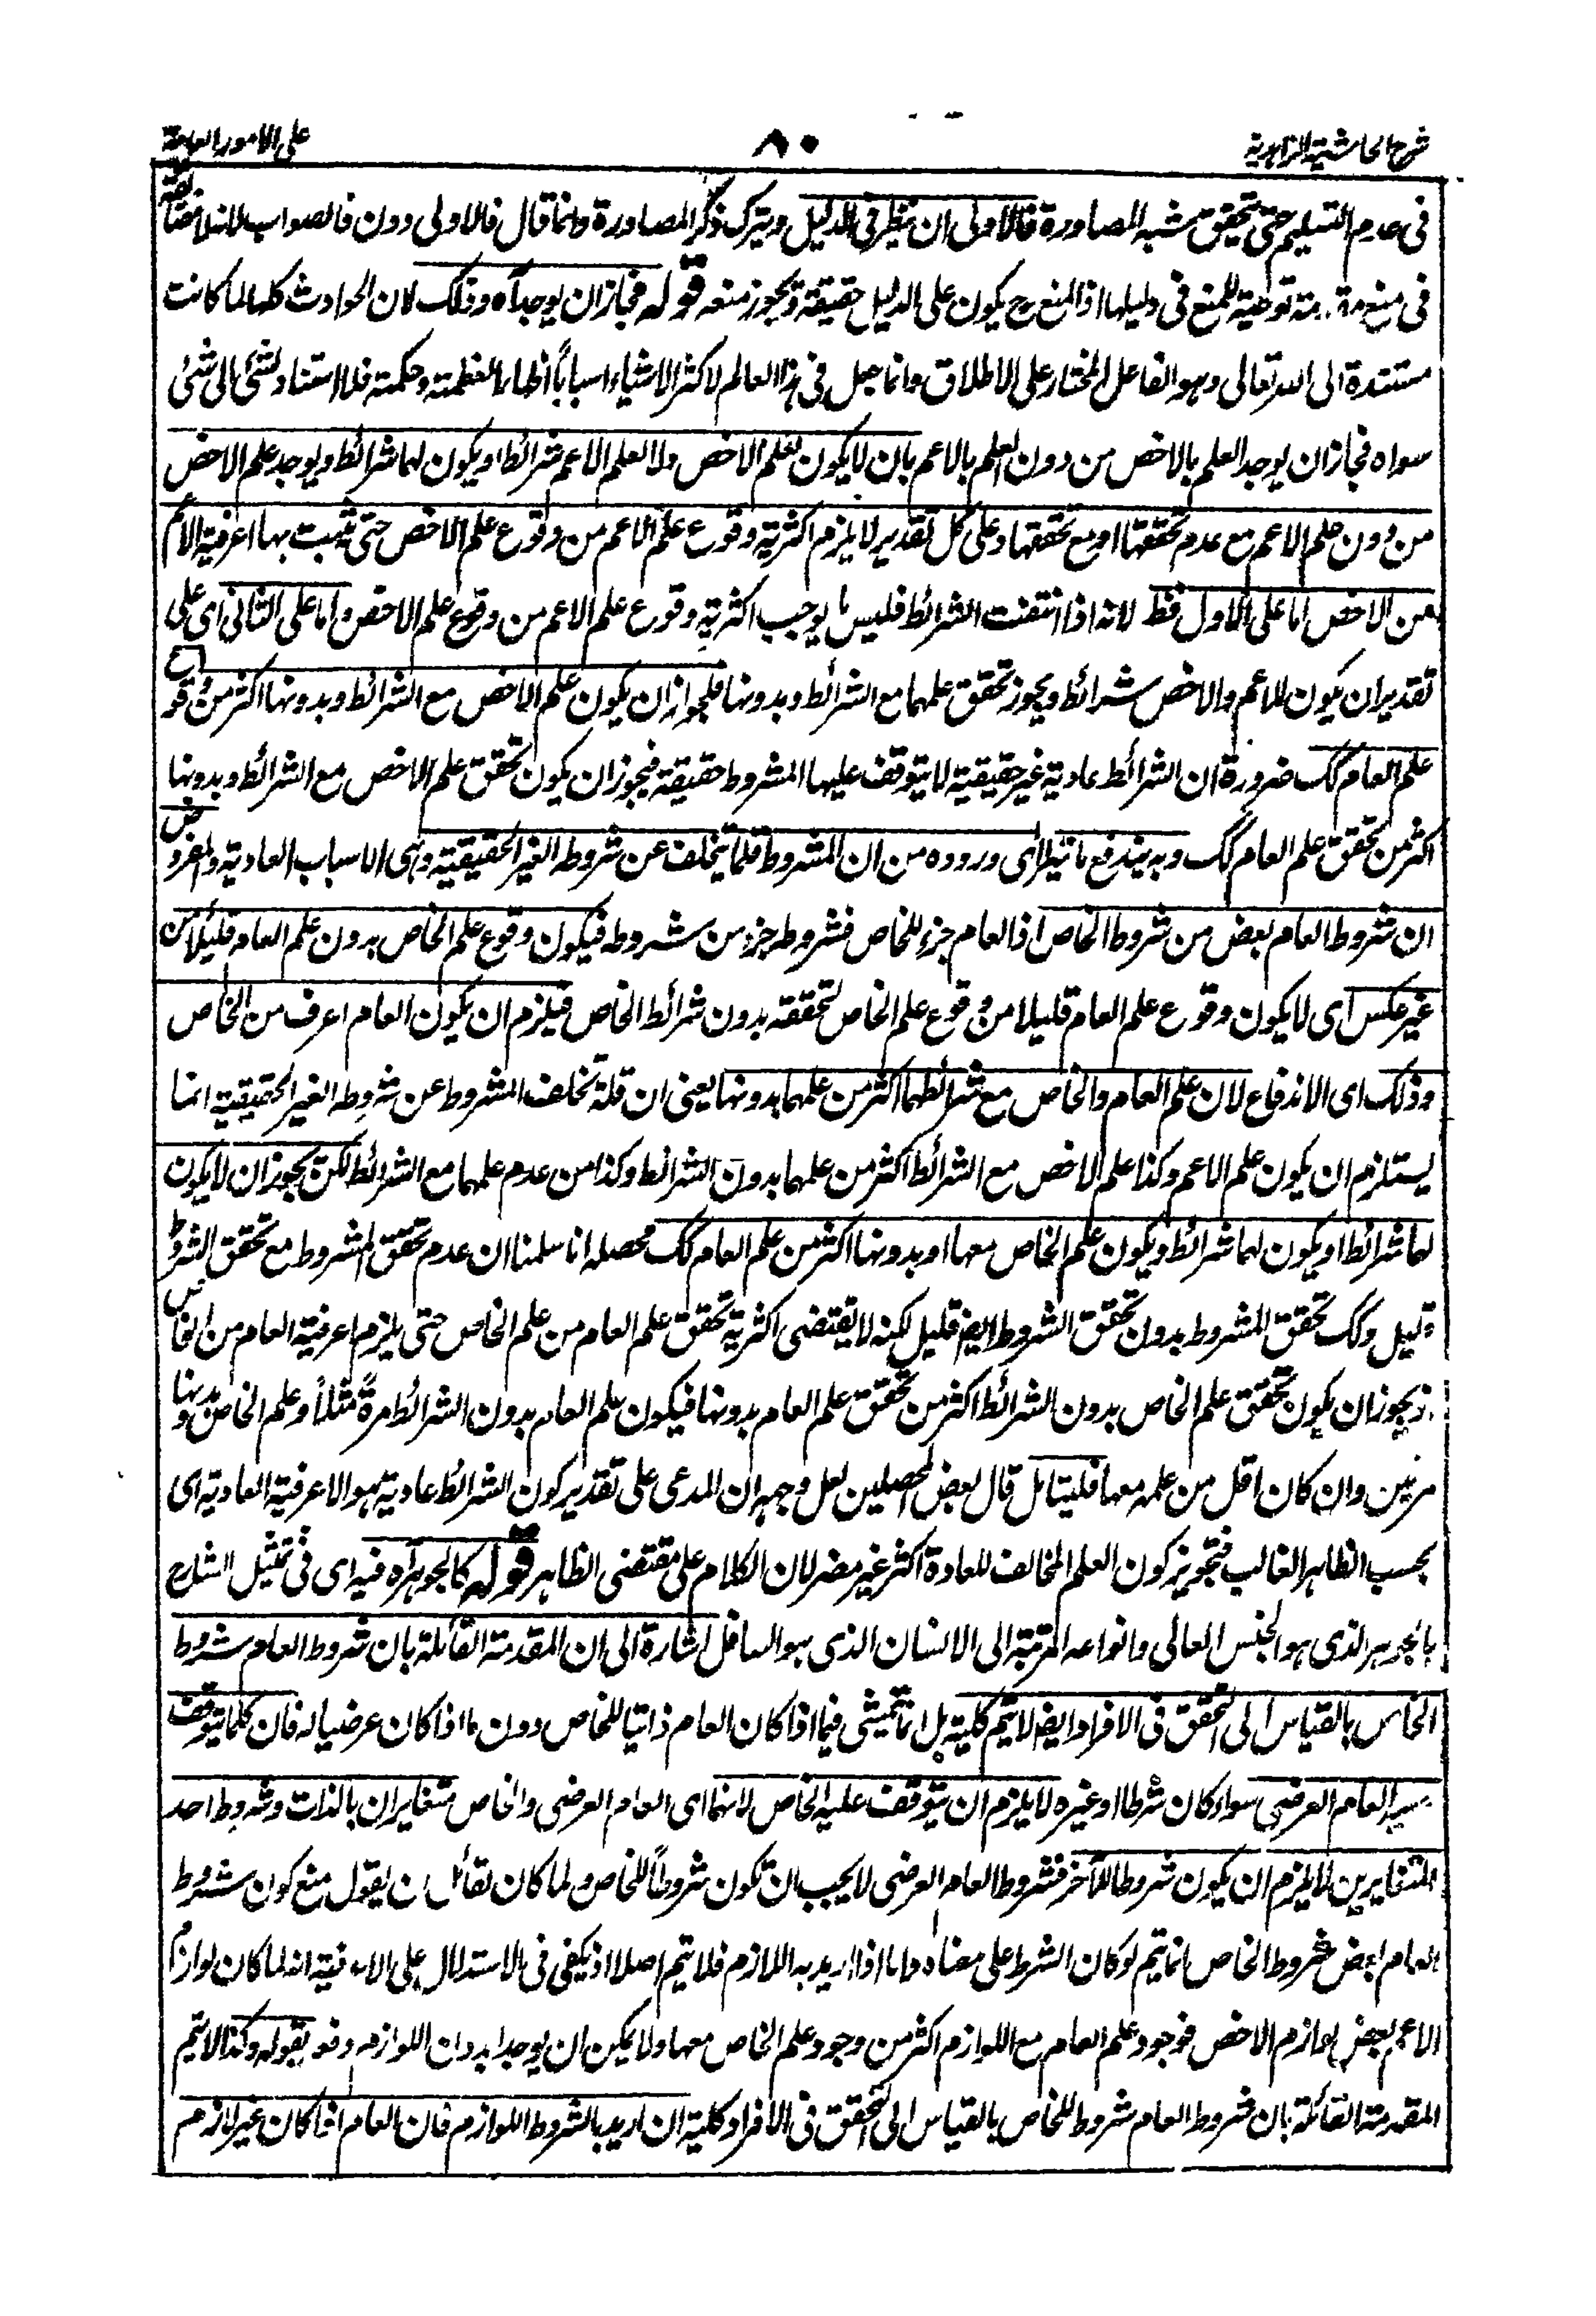 شرح الحاشية الزاهدية
٨٠
على الامور العامة
فى عدم التسليم حتى تحقيق شبه المصادرة فالاولى ان ينظر فى الدليل ويترك ذكر المصادرة وانما قال فالاولى دون فالصواب لانه لا مضائقة
فى منع توطية للمنع فى دليلها اذ المنع ح يكون على الدليل حقيقة ويجوز منعه قوله فجاز ان يوجد آه وذلك لان الحوادث كلها لما كانت
مستندة الى الله تعالى وهو الفاعل المختار على الاطلاق وانما جعل فى هذا العالم لاكثر الاشياء اسباباً اظهارا لعظمته وحكمته فلا استناد لشئ الى شئ
سواه فجاز ان يوجد العلم بالاخص من دون العلم بالاعم بان لا يكون لعلم الاخص ولا لعلم الاعم شرائط او يكون لهما شرائط ويوجد علم الاخص
من دون علم الاعم مع عدم تحققها او مع تحققها وعلى كل تقدير لا يلزم اكثرية وقوع علم الاعم من وقوع علم الاخص حتى تثبت بها اعرفية الاعم
من الاخص اما على الاول فقط لانه اذا انتفت الشرائط فليس ما يوجب اكثرية وقوع علم الاعم من وقوع علم الاخص واما على الثانى اى على
تقدير ان يكون للاعم والاخص شرائط ويجوز تحقق علمهما مع الشرائط وبدونها فلجواز ان يكون علم الاخص مع الشرائط وبدونها اكثر من وقوع
علم العام كك ضرورة ان الشرائط عادية غير حقيقية لا يتوقف عليها المشروط حقيقة فيجوز ان يكون تحقق علم الاخص مع الشرائط وبدونها
اكثر من تحقق علم العام كك وبه يندفع ما يتراى وروده من ان المشروط قلما يتخلف عن شروطه الغير الحقيقية وهى الاسباب العادية والمفروض
ان شروط العام بعض من شروط الخاص اذ العام جزء للخاص فشروطه جزء من شروطه فيكون وقوع علم الخاص بدون علم العام قليلا من
غير عكس اى لا يكون وقوع علم العام قليلا من وقوع علم الخاص لتحققه بدون شرائط الخاص فيلزم ان يكون العام اعرف من الخاص
وذلك اى الاندفاع لان علم العام والخاص مع شرائطهما اكثر من علمهما بدونها يعنى ان قلة تخلف المشروط عن شروطه الغير الحقيقية انما
يستلزم ان يكون علم الاعم وكذا علم الاخص مع الشرائط اكثر من علمهما بدون الشرائط وكذا من عدم علمهما مع الشرائط لكن يجوز ان لا يكون
لهما شرائط او يكون لهما شرائط ويكون علم الخاص معها او بدونها اكثر من علم العام كك محصله انا سلمنا ان عدم تحقق المشروط مع تحقق الشروط
قليل وكك تحقق المشروط بدون تحقق الشروط ايضا قليل لكنه لا يقتضى اكثرية تحقق علم العام من علم الخاص حتى يلزم اعرفية العام من الخاص
اذ يجوز ان يكون تحقق علم الخاص بدون الشرائط اكثر من تحقق علم العام بدونها فيكون علم العام بدون الشرائط مرةً مثلاً وعلم الخاص بدونها
مرتين وان كان اقل من علمه معها فليتامل قال بعض المحصلين لعل وجهه ان المدعى على تقدير كون الشرائط عادية هو الاعرفية العادية اى
بحسب الظاهر الغالب فتجويز كون العلم المخالف للعادة اكثر غير مضر لان الكلام على مقتضى الظاهر قوله كالجوهر آه فيه اى فى تمثيل الشارح
بالجوهر الذى هو الجنس العالى وانواعه المرتبة الى الانسان الذى هو السافل اشارة الى ان المقدمة القائلة بان شروط العام شروط
الخاص بالقياس الى التحقق فى الافراد ايضا لا يتم كلية بل انما تتمشى فيما اذا كان العام ذاتيا للخاص دون ما اذا كان عرضيا له فان كلما يتوقف
عليه العام العرضى سواء كان شرطا او غيره لا يلزم ان يتوقف عليه الخاص لانهما اى العام العرضى والخاص متغايران بالذات وشروط احد
المتغايرين لا يلزم ان يكون شروطا للآخر فشروط العام العرضى لا يجب ان تكون شروطاً للخاص ولما كان لقائل ان يقول منع كون شروط
العام بعض شروط الخاص انما يتم لو كان الشرط على معناه واما اذا اريد به اللازم فلا يتم اصلا اذ يكفى فى الاستدلال على الاعرفية انه لما كان لوازم
الاعم بعض لوازم الاخص فوجود علم العام مع اللوازم اكثر من وجود علم الخاص معها ولا يمكن ان يوجدا بدون اللوازم دفعه بقوله وكذا لا يتم
المقدمة القائلة بان شروط العام شروط للخاص بالقياس الى التحقق فى الافراد كلية ان اريد بالشروط اللوازم فان العام اذا كان غير لازم